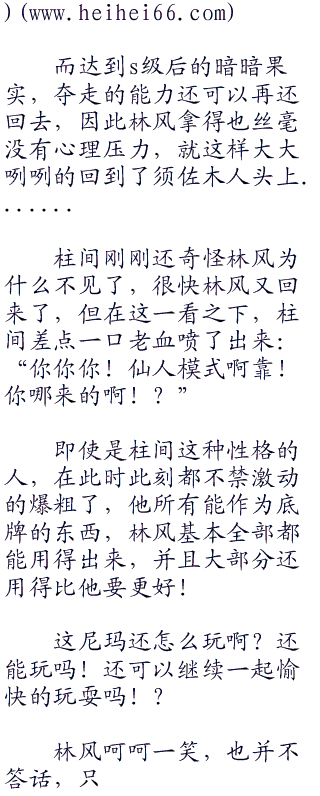 ) (www.heihei66.com)
而达到s级后的暗暗果
实，夺走的能力还可以再还
回去，因此林风拿得也丝毫
没有心理压力，就这样大大
咧咧的回到了须佐木人头上.
......
柱间刚刚还奇怪林风为
什么不见了，很快林风又回
来了，但在这一看之下，柱
间差点一口老血喷了出来：
“你你你！仙人模式啊靠！
你哪来的啊！？”
即使是柱间这种性格的
人，在此时此刻都不禁激动
的爆粗了，他所有能作为底
牌的东西，林风基本全部都
能用得出来，并且大部分还
用得比他要更好！
这尼玛还怎么玩啊？还
能玩吗！还可以继续一起愉
快的玩耍吗！？
林风呵呵一笑，也并不
答话，只